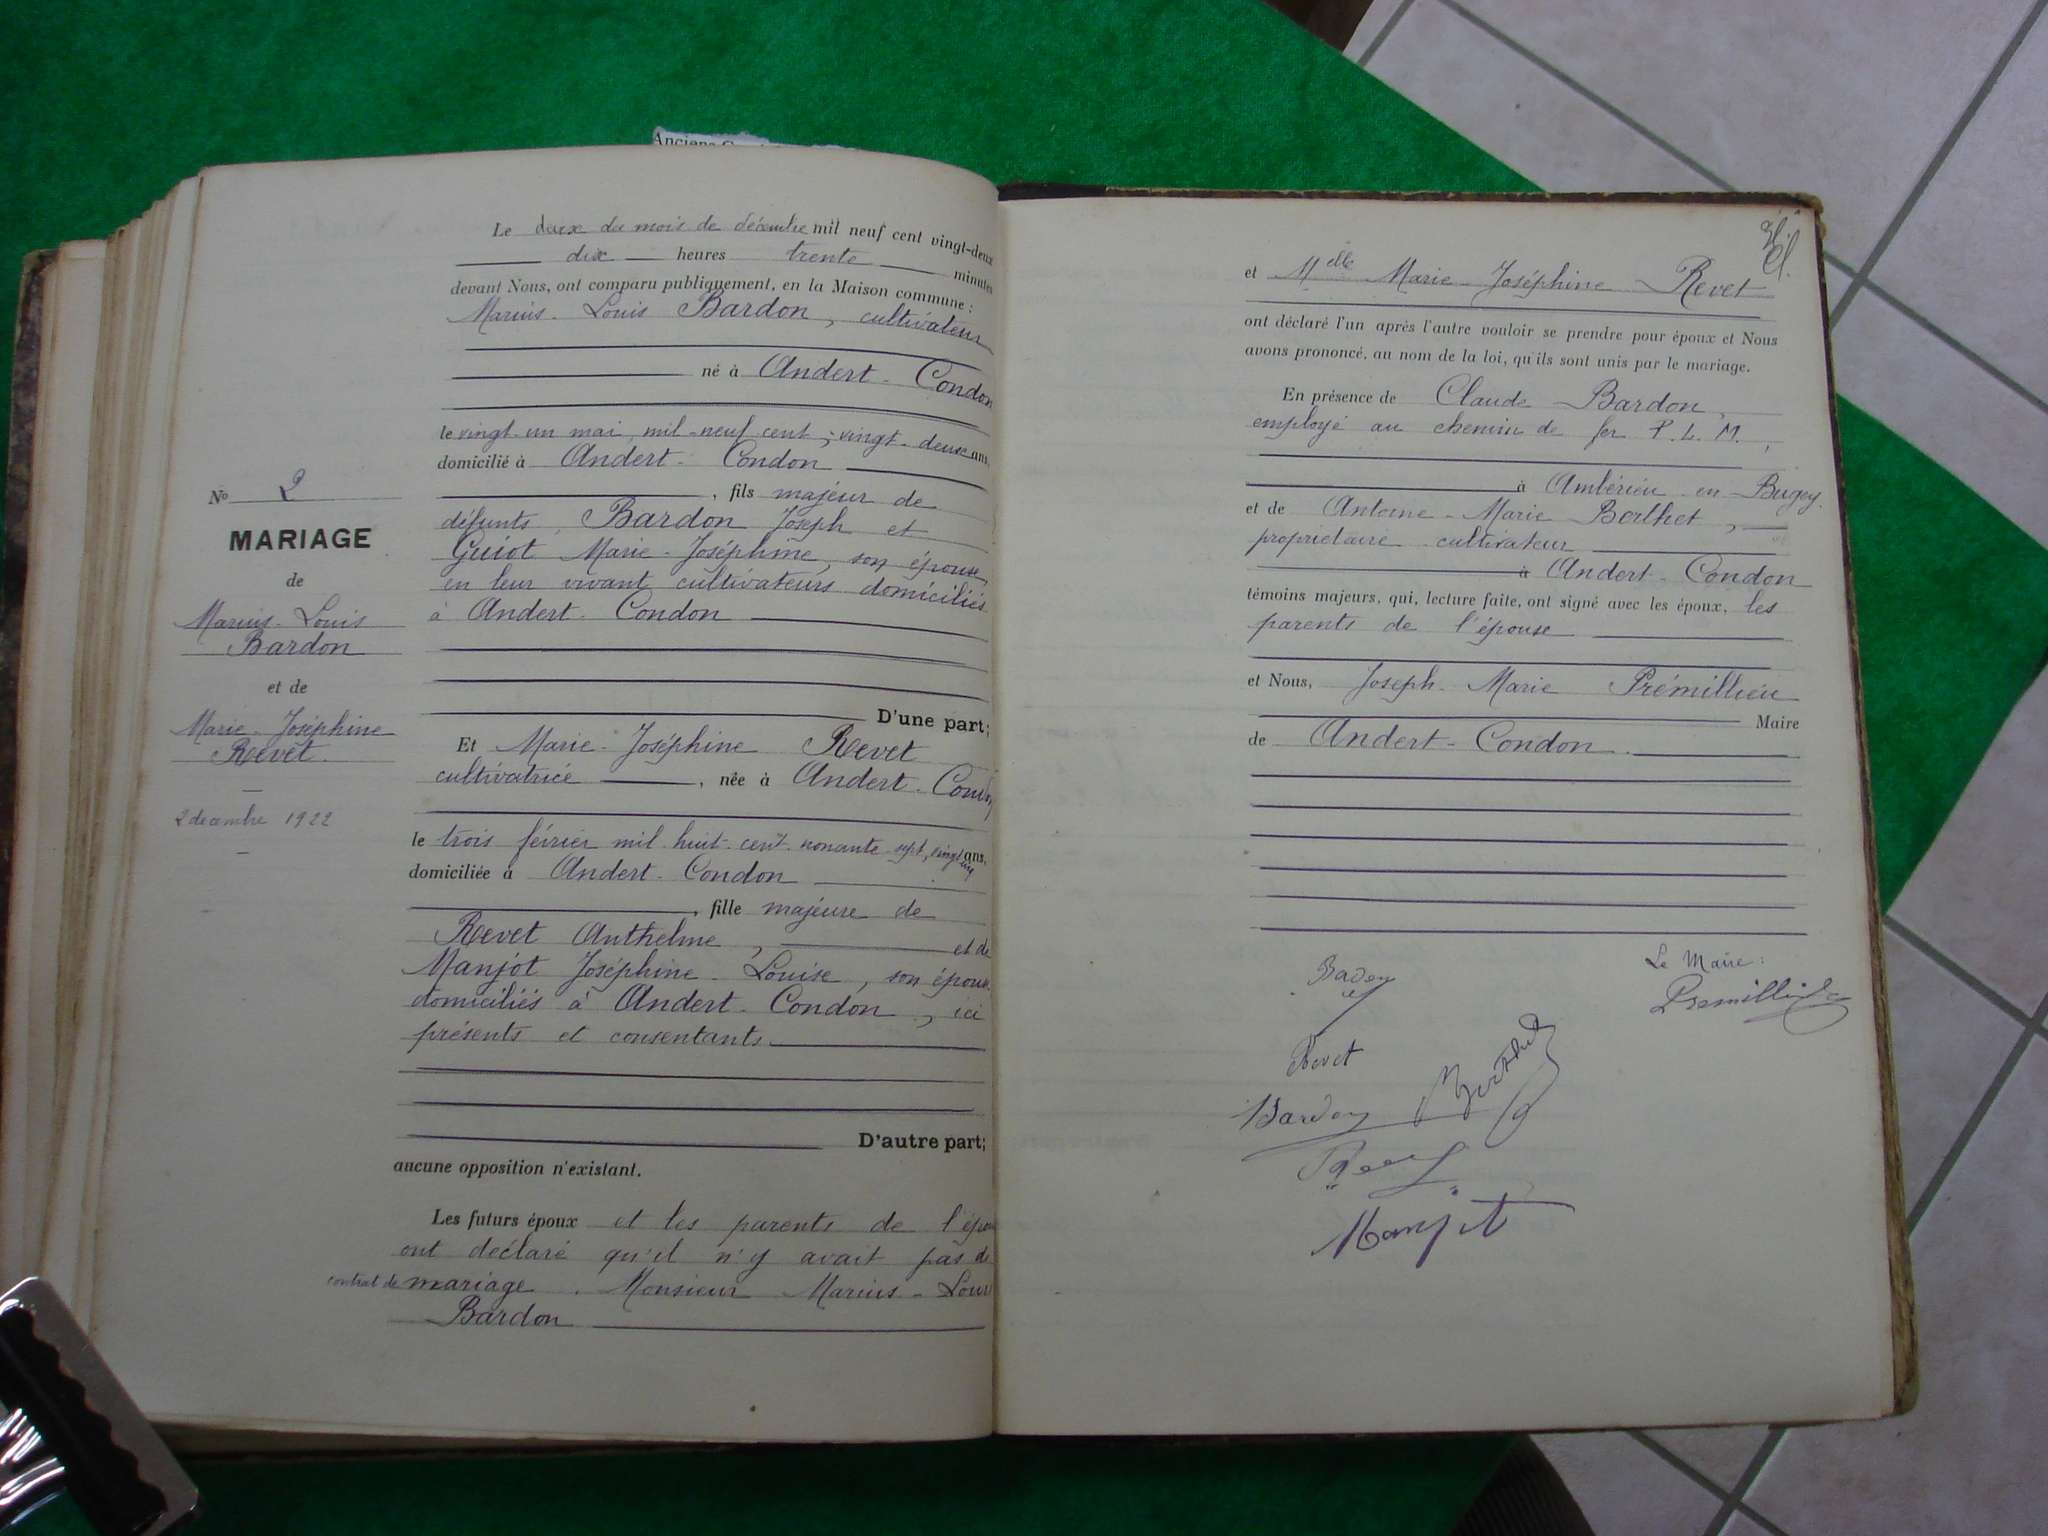 Anciens
Le deux du mois de décembre mil neuf cent vingt-deux
dix heures trente minutes
devant Nous, ont comparu publiquement, en la Maison commune :
Marius-Louis Bardon, cultivateur
né à Andert-Condon
le vingt-un mai mil-neuf cent, vingt-deux ans,
domicilié à Andert-Condon
, fils majeur de
défunts, Bardon Joseph et
Guiot Marie-Joséphine, son épouse,
en leur vivant cultivateurs domiciliés
à Andert-Condon
D'une part;
Et Marie-Joséphine Revet
cultivatrice, née à Andert-Condon
le trois février mil-huit-cent-nonante-sept, vingt ans,
domiciliée à Andert-Condon
, fille majeure de
Revet Anthelme, et de
Manjot Joséphine-Louise, son épouse
domiciliés à Andert-Condon, ici
présents et consentants
D'autre part;
aucune opposition n'existant.
Les futurs époux et les parents de l'épouse
ont déclaré qu'il n'y avait pas de
contrat de mariage. Monsieur Marius-Louis
Bardon
No 2
MARIAGE
de
Marius-Louis
Bardon
et de
Marie-Joséphine
Revet.
2 decembre 1922
et Melle Marie-Joséphine Revet
ont déclaré l'un après l'autre vouloir se prendre pour époux et Nous
avons prononcé, au nom de la loi, qu'ils sont unis par le mariage.
En présence de Claude Bardon,
employé au chemin de fer P.L.M.,
à Ambérieu-en-Bugey.
et de Antoine-Marie Berthet,
propriétaire cultivateur
à Andert-Condon
témoins majeurs, qui, lecture faite, ont signé avec les époux, les
parents de l'épouse
et Nous, Joseph-Marie Prémillieu
Maire
de Andert-Condon.
Le Maire :
Premillieu
Revet
Bardon Berthet
Manjot